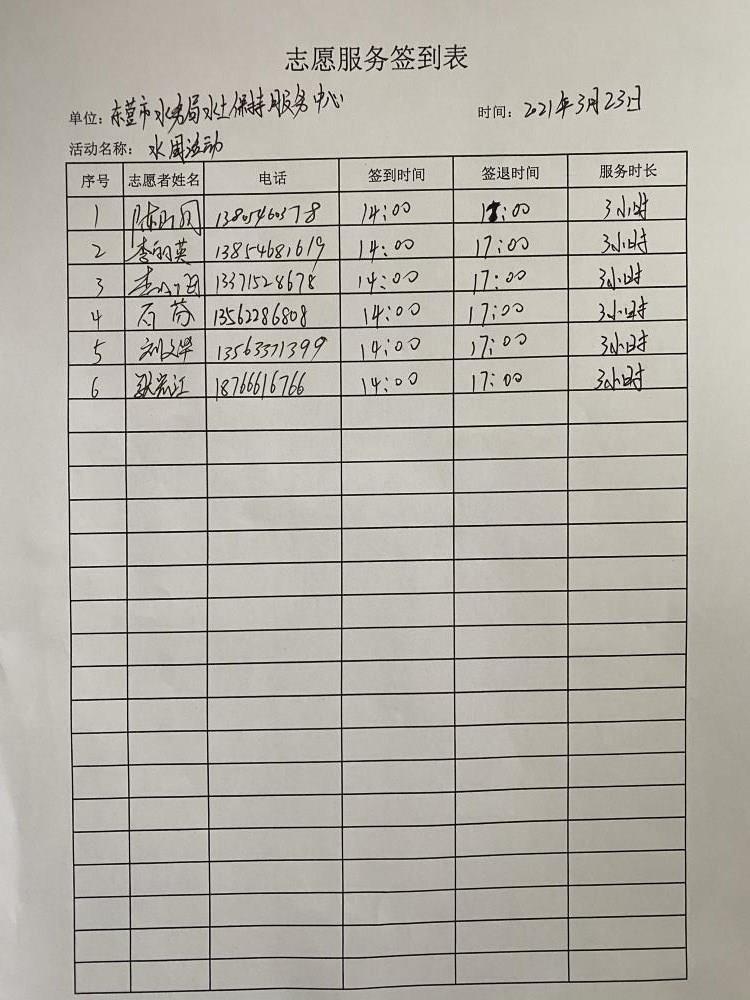 志愿服务签到表
单位: 东营市水务局水土保持服务中心 时间: 2021年3月23日
活动名称: 水周活动
序号 志愿者姓名 电话 签到时间 签退时间 服务时长
1 13805460378 14:00 17:00 3小时
2 李 英 13854681619 14:00 17:00 3小时
3 李 13371528678 14:00 17:00 3小时
4 石芬 13562286808 14:00 17:00 3小时
5 刘文华 13563371399 14:00 17:00 3小时
6 江 18766616766 14:00 17:00 3小时